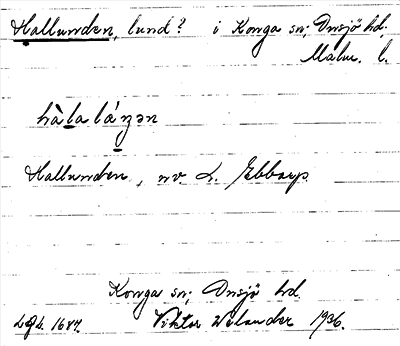 Hallunden, lund? i Konga sn; Onsjö hd.
Malm. l.
hàlaláŋən
Hallunden, nv. L. Ebbarp.
Konga sn; Onsjö hd.
LAL. 1687. Viktor Welander 1936.